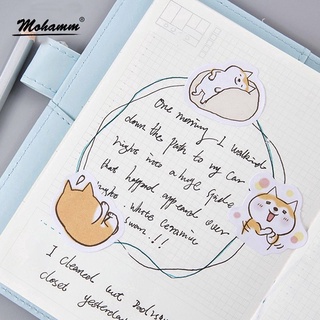 Mohamm®
One morning I walked
down the path to my car
right into a huge
that happend appeared over
night whose ceramic
swan.!!
I cleaned out
closet yesterday